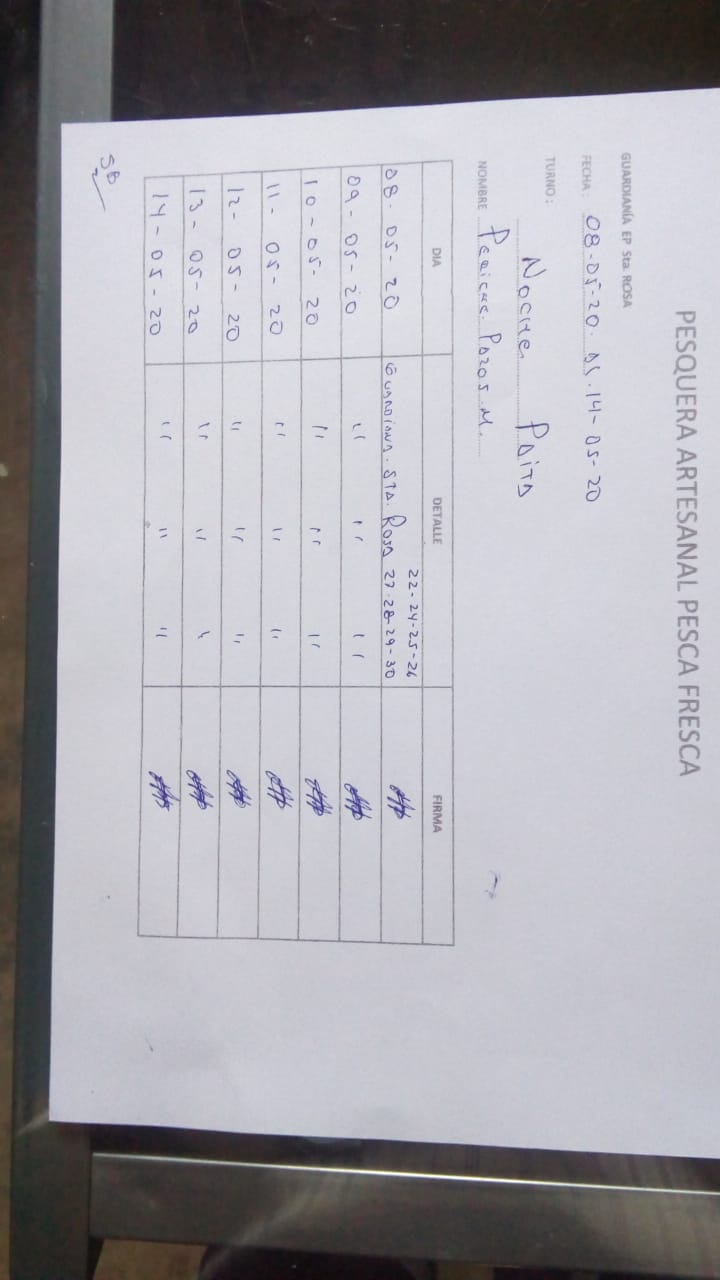 PESQUERA ARTESANAL PESCA FRESCA
GUARDIANÍA EP Sta. ROSA
FECHA: 08-05-20. AL. 14-05-20
TURNO: Noche Paita
NOMBRE Periche. Pazos. M.
DIA DETALLE FIRMA
22-24-25-26
08. 05-20 Guardiana. STA. Rosa 27-28-29-30
09-05-20 " " "
10-05-20 " " "
11-05-20 " " "
12-05-20 " " "
13-05-20 " " "
14-05-20 " " "
SB